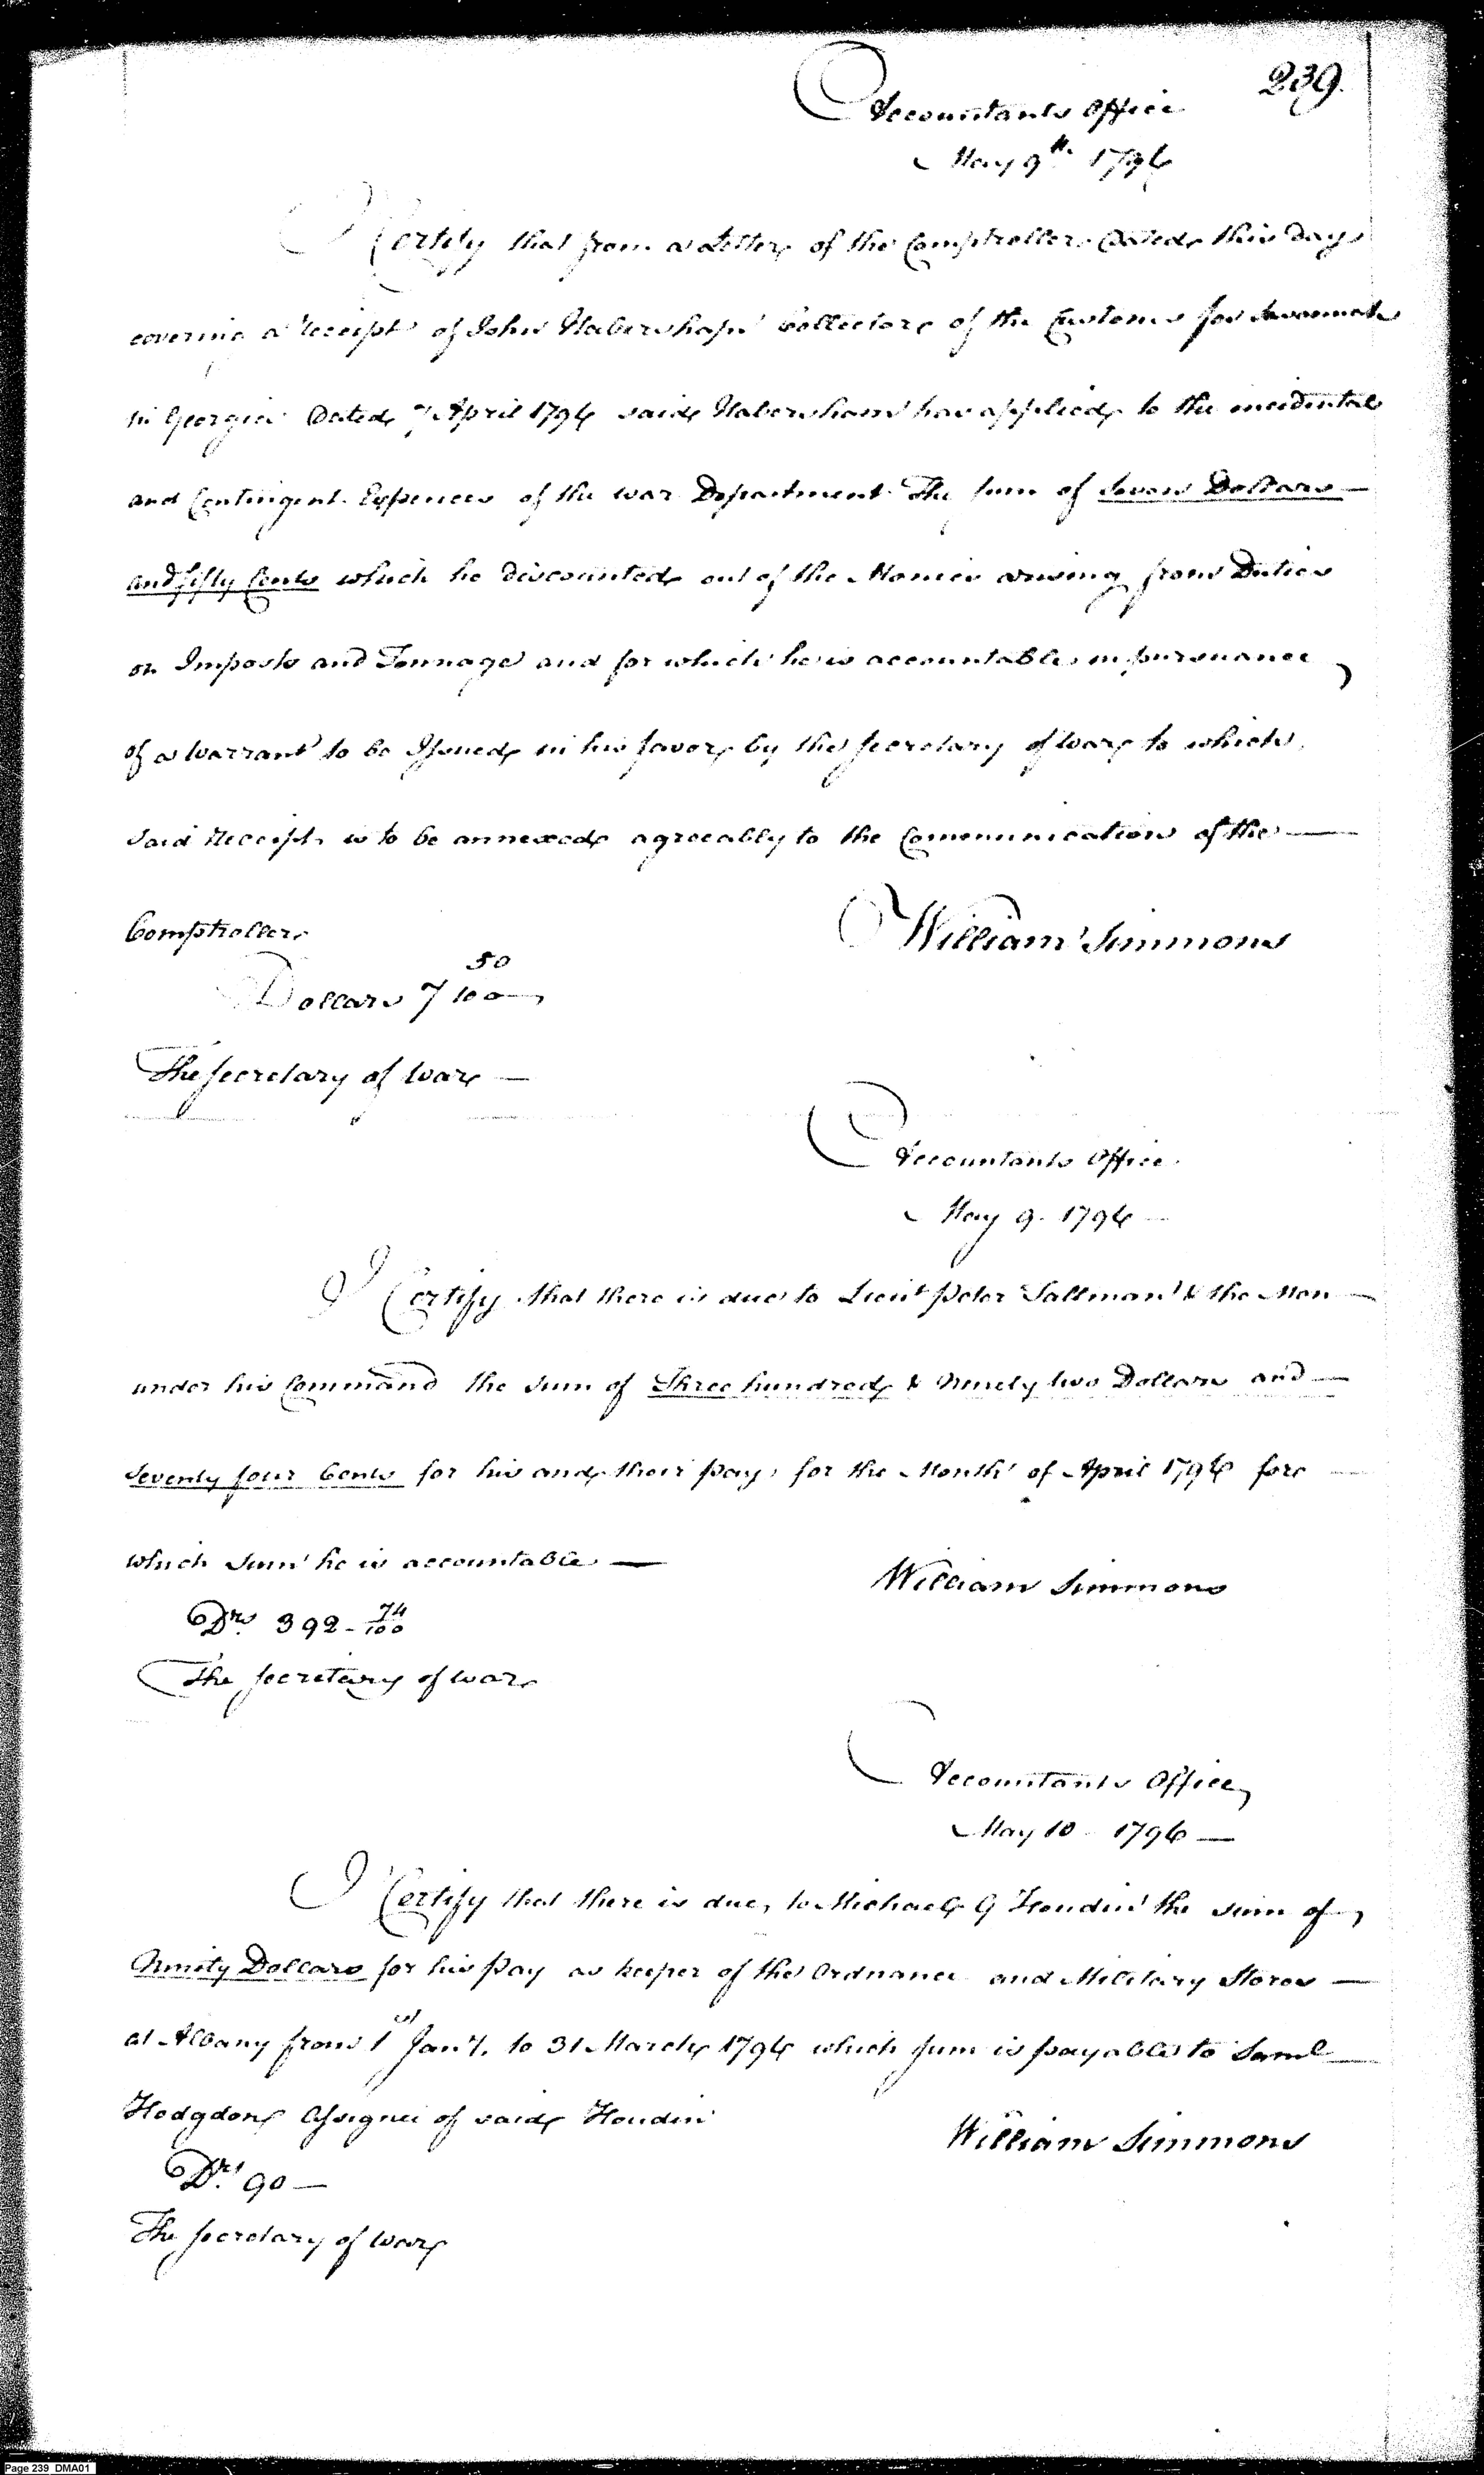 239.
Accountants Office
May 9th. 1796
I Certify that from a Letter of the Comptroller Dated this day
covering a Receipt of John Habersham Collector of the Customs for Savannah
in Georgia Dated 7 April 1796 said Habersham has applied to the incidental
and Contingent Expences of the war Department The sum of Seven Dollars —
and fifty Cents which he discounted out of the Monies arising from Duties
on Imposts and Tonnage and for which he is accountable in pursuance
of a warrant to be Issued in his favor by the Secretary of War to which
said Receipt is to be annexed agreeably to the Communication of the —
Comptroller
William Simmons
Dollars 7 50/100
The Secretary of War —
Accountants Office
May 9. 1796
I Certify that there is due to Lieut Peter Tallman & the Men —
under his Command the sum of Three hundred & Ninety two Dollars and —
Seventy four Cents for his and their pay for the Month of April 1796 for
which sum he is accountable —
William Simmons
Drs. 392-74/100
The Secretary of War
Accountants Office
May 10 1796 —
I Certify that there is due, to Michael G Houdin the sum of
Ninety Dollars for his Pay as keeper of the Ordnance and Military Stores —
at Albany from 1st Jany. to 31 March 1796 which sum is payable to Saml
Hodgdon Assignee of said Houdin
William Simmons
Drs. 90 —
The Secretary of War
Page 239 DMA01